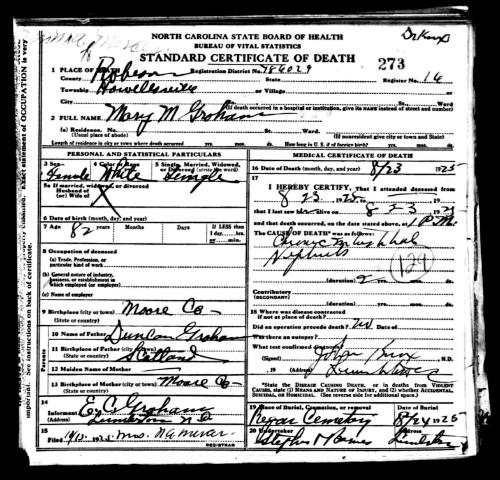 NORTH CAROLINA STATE BOARD OF HEALTH
BUREAU OF VITAL STATISTICS
STANDARD CERTIFICATE OF DEATH
273
1 PLACE OF DEATH
County Robeson Registration District No. 786029 Register No. 16
State
Township Howellsville or Village
City No. St. Ward
(If death occurred in a hospital or institution, give its name instead of street and number)
2 FULL NAME Mary M Graham
(a) Residence. No. St. Ward.
(Usual place of abode) (If nonresident give city or town and State)
Length of residence in city or town where death occurred yrs. mos. ds. How long in U. S., if of foreign birth? yrs. mos. ds.
PERSONAL AND STATISTICAL PARTICULARS
3 Sex 4 Color or Race 5 Single, Married, Widowed, or Divorced (write the word)
Female White Single
5a If married, widowed, or divorced
Husband of
(or) Wife of X
6 Date of birth (month, day, and year)
7 Age Years Months Days If LESS than
82 1 day, hrs.
or min.
8 Occupation of deceased
(a) Trade, Profession, or
particular kind of work
(b) General nature of industry,
business, or establishment in
which employed (or employer)
(c) Name of employer
9 Birthplace (city or town) Moore Co
(State or country)
10 Name of Father Duncan Graham
11 Birthplace of Father (city or town)
(State or country) Scotland
12 Maiden Name of Mother
13 Birthplace of Mother (city or town) Moore Co
(State or country)
14
Informant E C Graham
(Address) Lumberton N.C.
15
Filed
REGISTRAR
MEDICAL CERTIFICATE OF DEATH
16 Date of Death (month, day, and year) 8/23 1925
17
I HEREBY CERTIFY, That I attended deceased from
8 23 1925 to 8 23 1925
that I last saw h alive on
and that death occurred, on the date stated above, at 1 P.M.
The CAUSE OF DEATH was as follows:
Nephritis
129
(duration) 2 yrs. mos. ds.
Contributory
(SECONDARY)
(duration) yrs. mos. ds.
18 Where was disease contracted
if not at place of death?
Did an operation precede death? No Date of
Was there an autopsy?
What test confirmed diagnosis?
(Signed) John Knox M.D.
, 19 (Address)
*State the DISEASE CAUSING DEATH, or in deaths from VIOLENT CAUSES, state (1) MEANS AND NATURE OF INJURY, and (2) whether ACCIDENTAL, SUICIDAL, or HOMICIDAL. (See reverse side for additional space.)
19 Place of Burial, Cremation, or removal Date of Burial
Cemetery 8/24 1925
20 Undertaker Address
Stephens & Barnes Lumberton